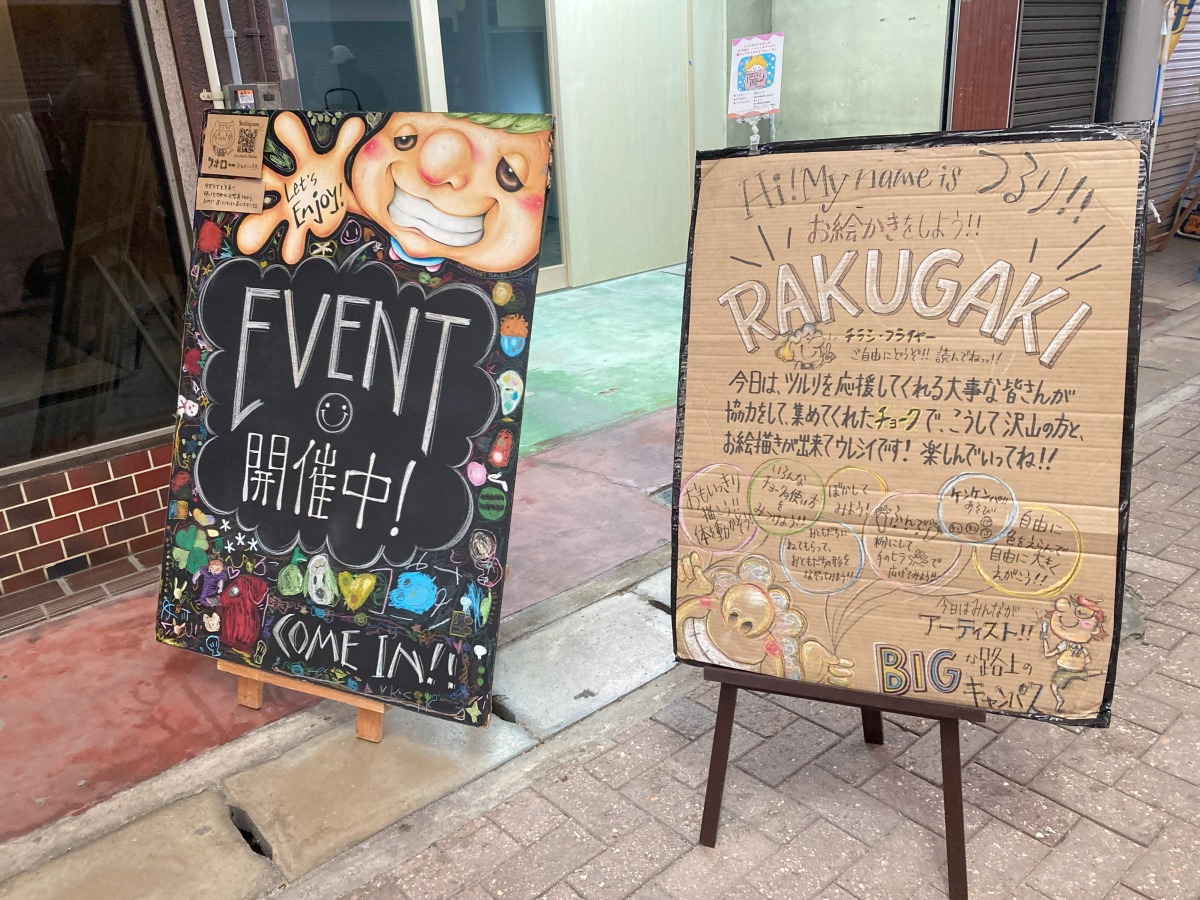 Instagram
クオロ
Let's
Enjoy!
EVENT
開催中!
COME IN!!
Hi! My name is つるり!!
お絵かきをしよう!!
RAKUGAKI
チラシ・フライヤー
ご自由にどうぞ!! 読んでねっ!!
今日は、ツルリを応援してくれる大事な皆さんが
協力をして、集めてくれたチョークで、こうして沢山の方と、
お絵描きが出来てウレシイです! 楽しんでいってね!!
おもいっきり
描こう!!
いろんな
チョークの使い方
を
みつけよう!!
ぼかして
みよう!
おともだちに
ねてもらって、
おともだちの形を
なぞってみよう!!
ふんで!!
粉にして
手のヒラで
広げてみよう!!
ケンケンパ
あそび
自由に
色をえらんで
自由に大きく
えがこう!!
今日はみんなが
アーティスト!!
BIGな路上の
キャンパス